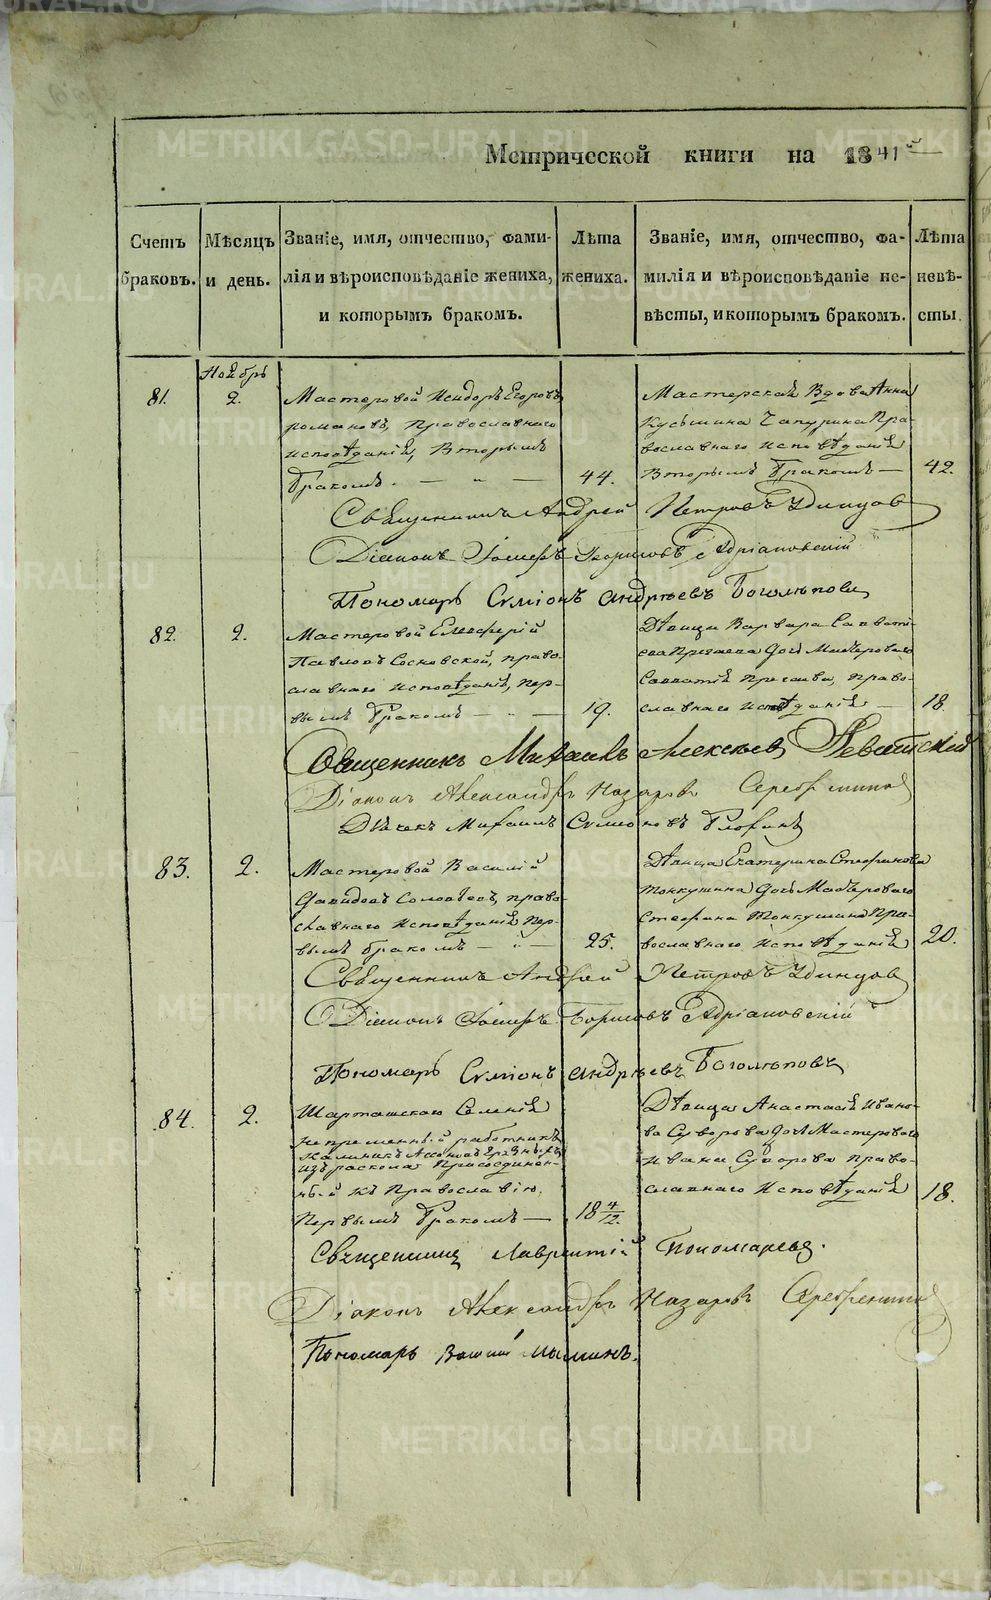 Метрической книги на 1841й
Счетъ браковъ.
Мѣсяцъ и день.
Званіе, имя, отчество, фами-
лія и вѣроисповѣданіе жениха,
и которымъ бракомъ.
Лѣта
жениха.
Званіе, имя, отчество, фа-
милія и вѣроисповѣданіе не-
вѣсты, и которымъ бракомъ.
Лѣта
невѣ-
сты.
Ноябрь
81.
2.
Мастеровой Исидоръ Егоровъ
романовъ, Православнаго
исповѣданія, Вторымъ
бракомъ.
44.
Мастерская Вдова Анна
Кузьмина Чапурина Пра-
вославнаго исповѣданія
Вторымъ бракомъ
42.
Священникъ Андрей Петровъ Удинцов
Діаконъ Іосифъ Борисовъ Адріановскій
Пономарь Симіонъ Андрѣевъ Боголѣповъ
82.
2.
Мастеровой Елевферій
Павловъ Сосновской, право-
славнаго исповѣданія, пер-
вымъ бракомъ
19.
Дѣвица Варвара Савваті-
ева дочь Мастероваго
Савватія право-
славнаго исповѣданія
18.
Священникъ Михаилъ Алексѣев
Діаконъ Александръ Назаровъ Серебрениковъ
Дьячекъ Михаилъ Симіоновъ
83.
2.
Мастеровой Василій
Давидовъ Соловьевъ, право-
славнаго исповѣданія Пер-
вымъ бракомъ
25.
Дѣвица Екатерина Стефанова
Тонкушина дочь Мастероваго
Стефана Тонкушина Пра-
вославнаго исповѣданія
20.
Священникъ Андрей Петровъ Удинцов
Діаконъ Іосифъ Борисовъ Адріановскій
Пономарь Симіонъ Андрѣевъ Боголѣповъ
84.
2.
Шарташскаго Селенія
непременный работникъ
Калиникъ
изъ раскола Присоединен-
ный къ Православію.
Первымъ бракомъ
18 4/12.
Дѣвица Анастасія Ивано-
ва Суворова дочь Мастероваго
Ивана Суворова Право-
славнаго Исповѣданія
18.
Священникъ Лаврентій Пономаревъ.
Діаконъ Александръ Назаровъ Серебрениковъ
Пономарь Василій
METRIKI.GASO-URAL.RU